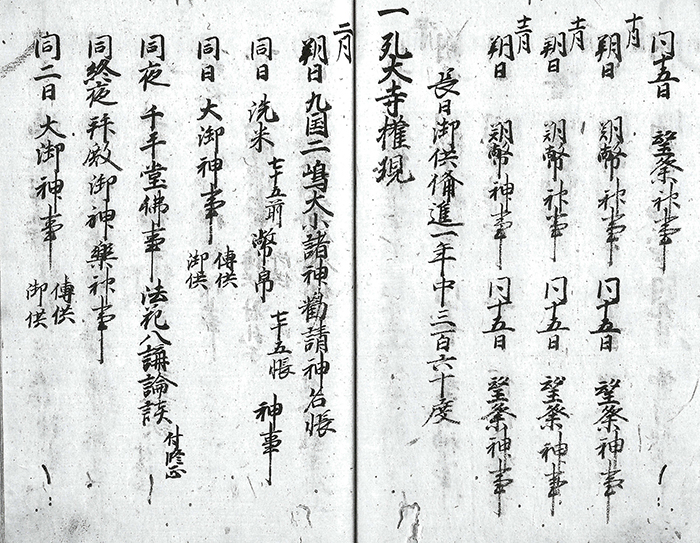 同十五日 望祭神事
十月 朔日 朔幣神事 同十五日 望祭神事
十一月 朔日 朔幣神事 同十五日 望祭神事
十二月 朔日 朔幣神事 同十五日 望祭神事
長日御供備進一年中三百六十度
一 孔大寺權現
二月
朔日 九国二嶋大小諸神勸請神名帳
同日 洗米 七十五前 幣帛 七十五帳 神事
同日 大御神事 傳供 御供
同夜 千手堂佛事 法花八講論談 付修正
同終夜 拜殿御神樂神事
同二日 大御神事 傳供 御供